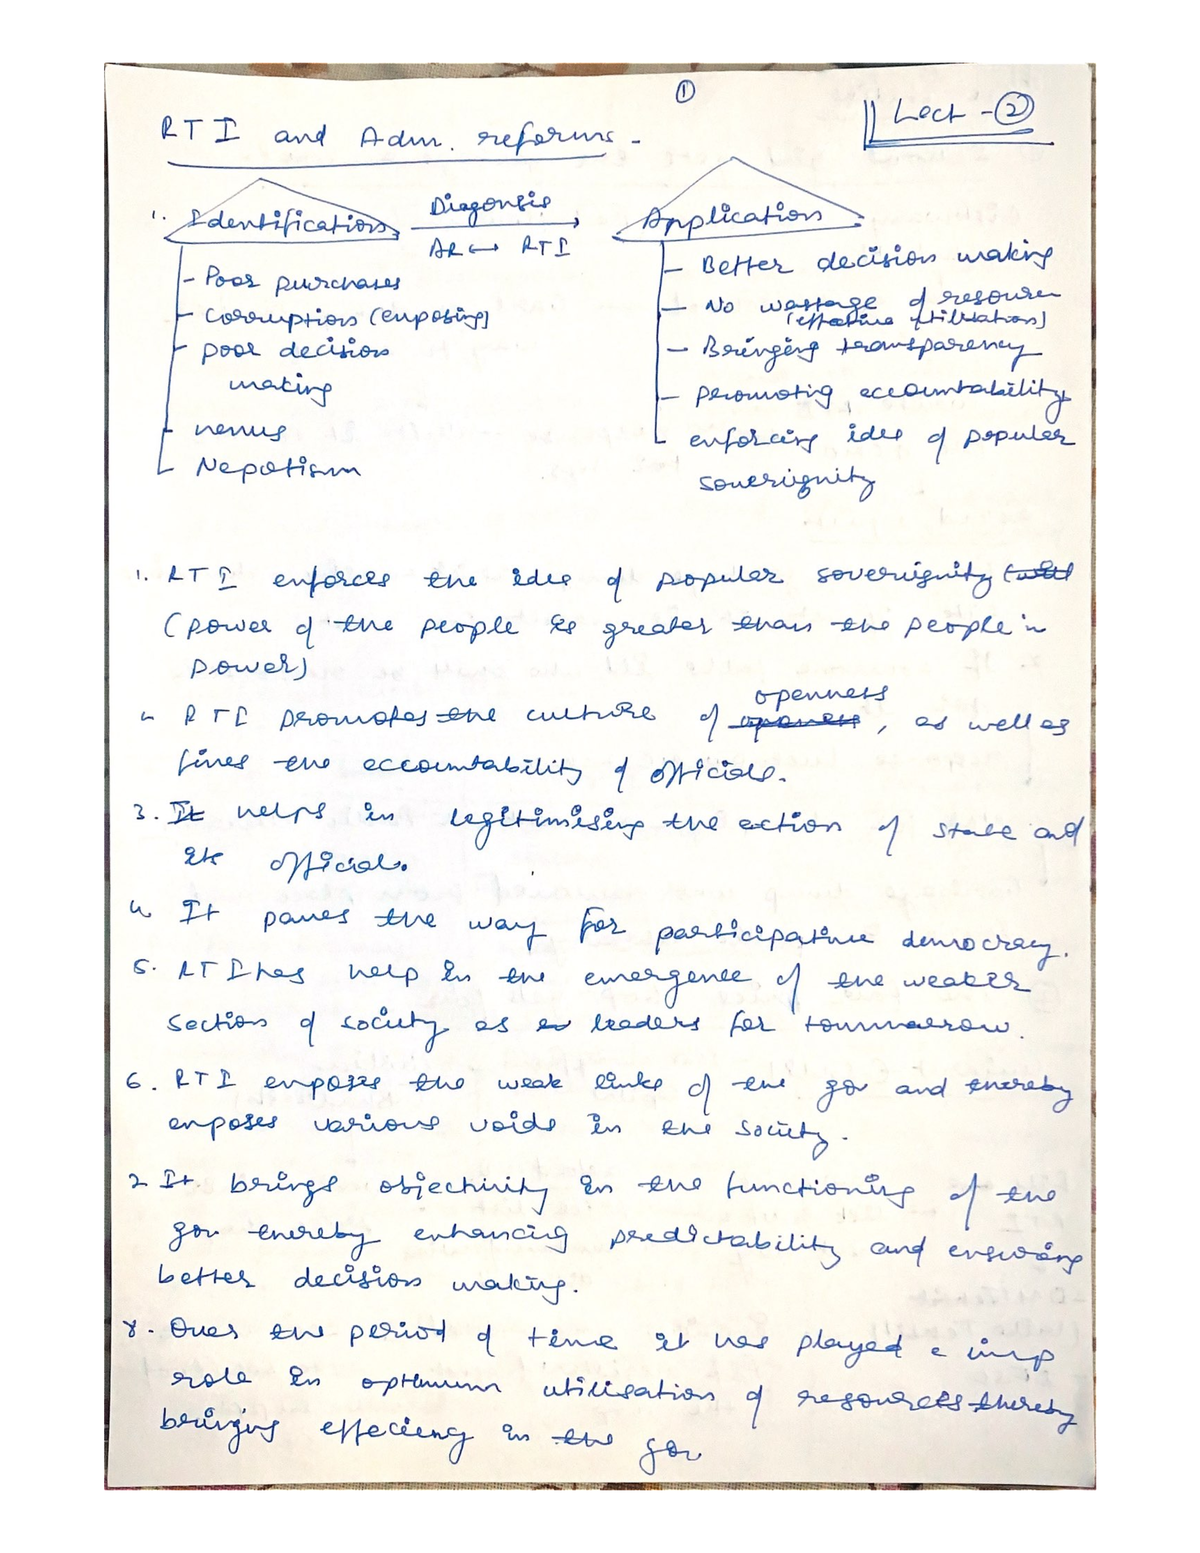 ①
Lect - ②
RTI and Adm. reforms -
1. Identification
Diagonsis
AR ↔ RTI
Application
- Poor purchases
- Corruption (exposing)
- poor decision
making
- nexus
- Nepotism
- Better decision making
- No wastage of resource
(effective utilistation)
- Bringing transparency
- promoting accountability
enforcing idea of popular
soverignity
1. RTI enforces the idea of popular soverignity
(power of the people is greater than the people in
power)
2. RTI promotes the culture of openness, as well as
fixes the accountability of officials.
3. It helps in legitimising the action of state and
its official.
4. It paves the way for participative democracy.
5. RTI has help in the emergence of the weaker
section of society as leaders for tommarrow.
6. RTI exposes the weak links of the gov and thereby
exposes various voids in the society.
7 It brings objectivity in the functioning of the
gov thereby enhancing predictability and ensuring
better decision making.
8. Over the period of time it has played a imp
role in optimum utilisation of resources thereby
bringing in the gov